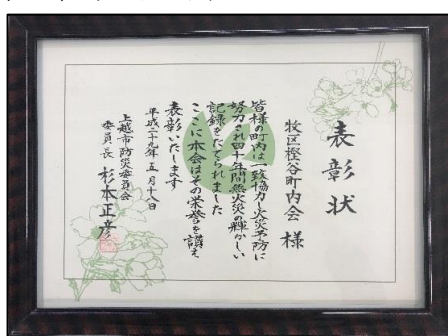 表彰状
牧区樫谷町内会 様
皆様の町内は一致協力し火災予防に
努力され四十年間無火災の輝かしい
記録をたてられました
ここに本会はその栄誉を讃え
表彰いたします
平成二十九年五月十八日
上越市防災委員会
委員長 杉本正彦